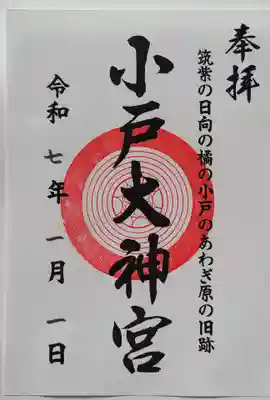 奉拝
筑紫の日向の橘の小戸のあわぎ原の旧跡
小戸大神宮
令和七年一月一日